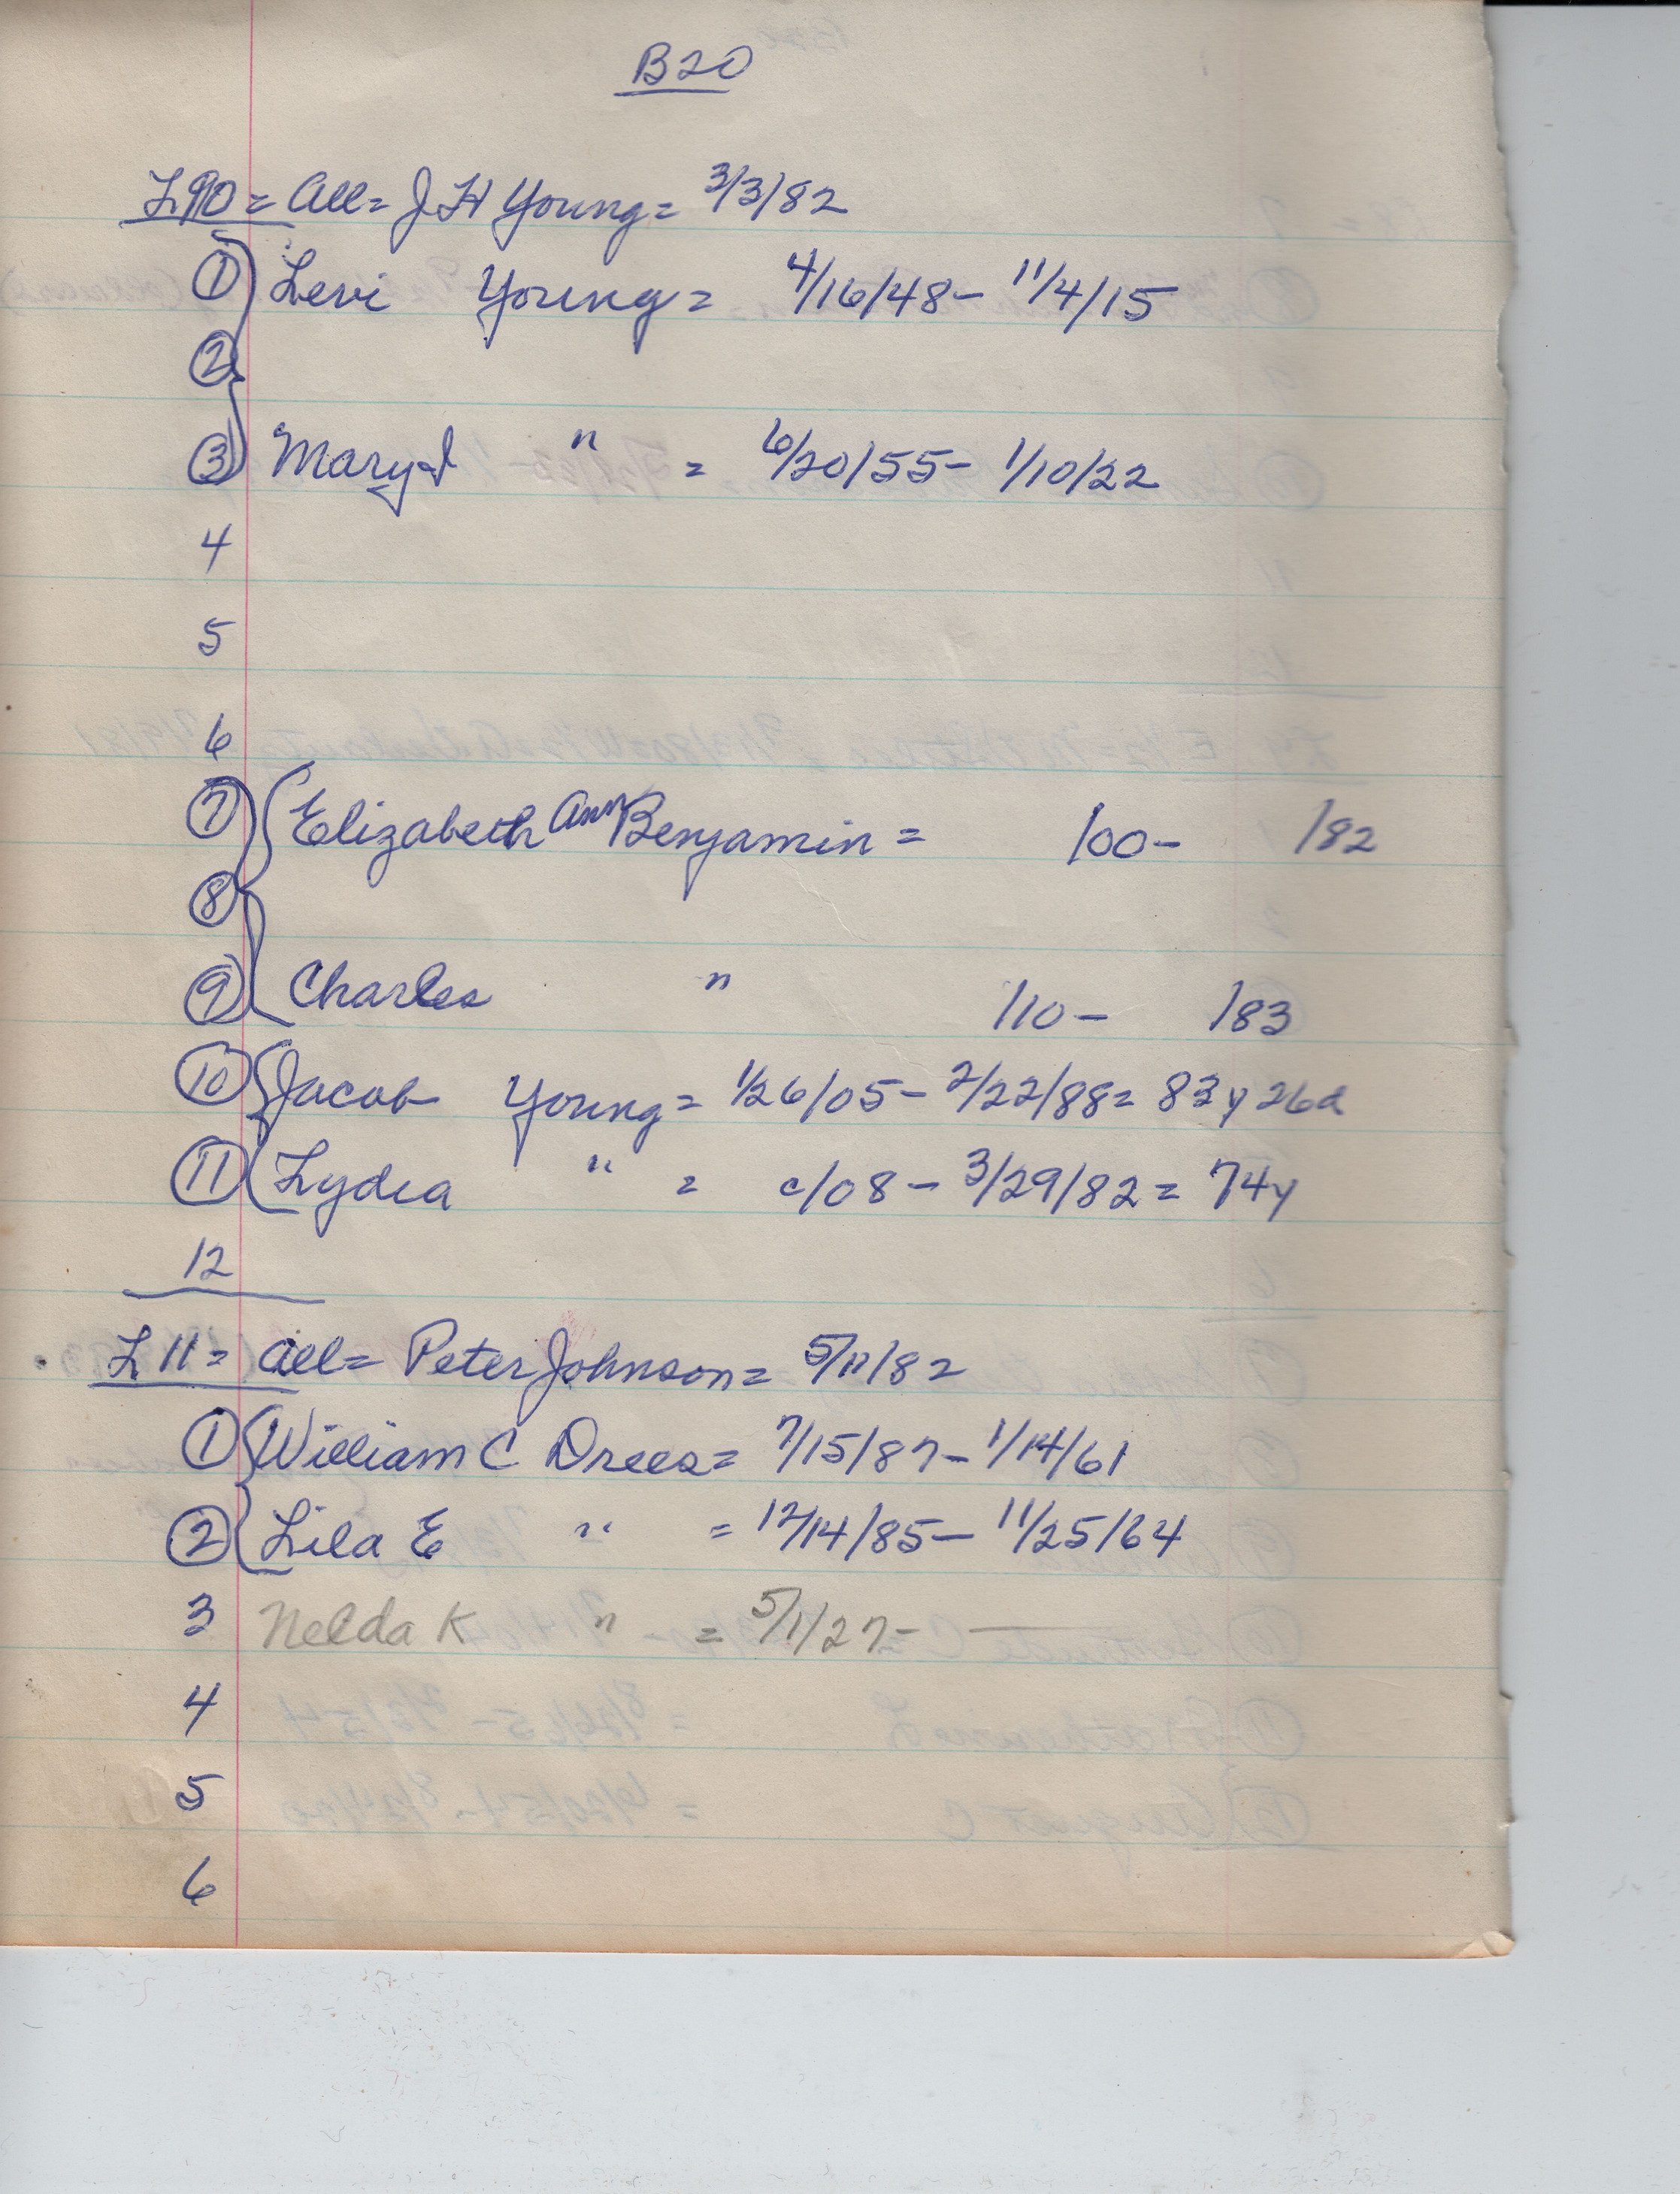 B20
L90 = All = J H Young = 3/3/82
① Levi Young = 4/16/48 - 11/4/15
②
③ Mary I " = 6/20/55 - 1/10/22
4
5
6
⑦ Elizabeth Ann Benjamin = /00 - /82
⑧
⑨ Charles " /10 - /83
⑩ Jacob Young = 1/26/05 - 2/22/88 = 83y 26d
⑪ Lydia " = c/08 - 3/29/82 = 74y
12
L11 = All = Peter Johnson = 5/11/82
① William C Drees = 7/15/87 - 1/14/61
② Lila E " = 12/14/85 - 11/25/64
3 Nelda K " = 5/1/27 - —
4
5
6